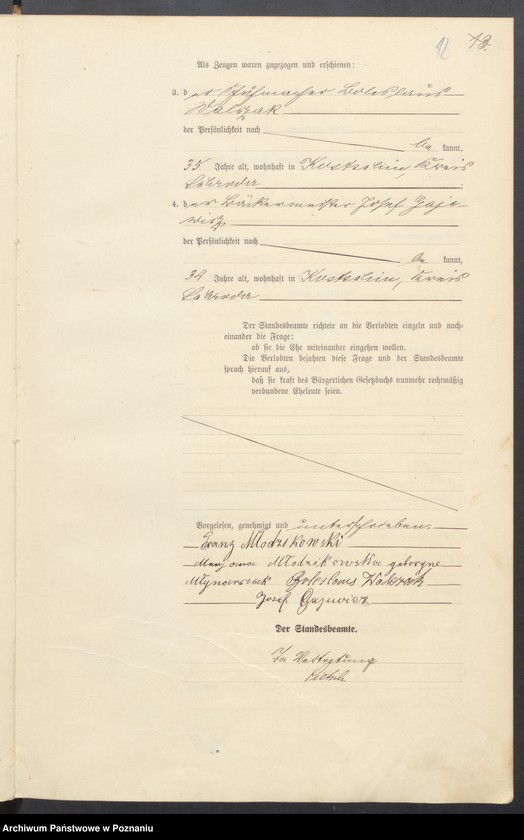 12 13.
Als Zeugen waren zugezogen und erschienen:
3. der Schuhmacher Boleslaus
Walczak
der Persönlichkeit nach
be kannt,
35 Jahre alt, wohnhaft in Kostschin, Kreis
Schroda ;
4. der Bäckermeister Josef Gaje-
wicz
der Persönlichkeit nach
be kannt,
34 Jahre alt, wohnhaft in Kostschin, Kreis
Schroda
Der Standesbeamte richtete an die Verlobten einzeln und nach-
einander die Frage:
ob sie die Ehe miteinander eingehen wollen.
Die Verlobten bejahten diese Frage und der Standesbeamte
sprach hierauf aus,
daß sie kraft des Bürgerlichen Gesetzbuchs nunmehr rechtmäßig
verbundene Eheleute seien.
Vorgelesen, genehmigt und unterschrieben.
Franz Młodzikowski
Maryanna Młodzikowska geborgne
Młynarczak Boleslaus Walczak
Josef Gajewicz
Der Standesbeamte.
In Vertretung
Archiwum Państwowe w Poznaniu